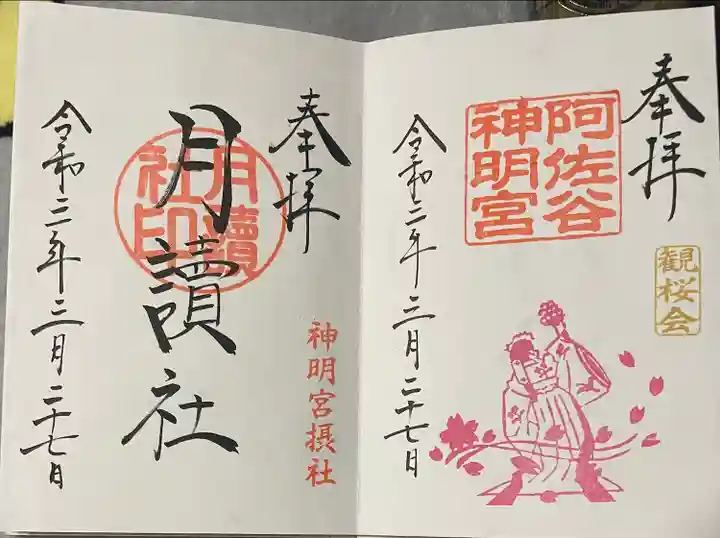 奉拝
観桜会
阿佐谷
神明宮
令和三年三月二十七日
奉拝
神明宮摂社
月讀社
月讀
社印
令和三年三月二十七日